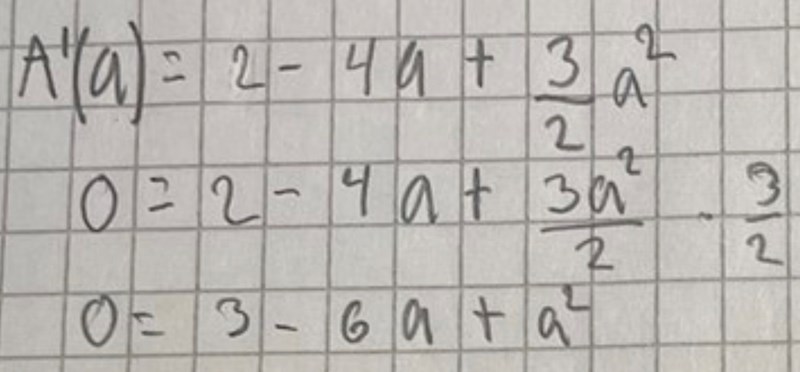 A'(a) = 2 - 4a + 3/2 a²
0 = 2 - 4a + 3a²/2 · 3/2
0 = 3 - 6a + a²